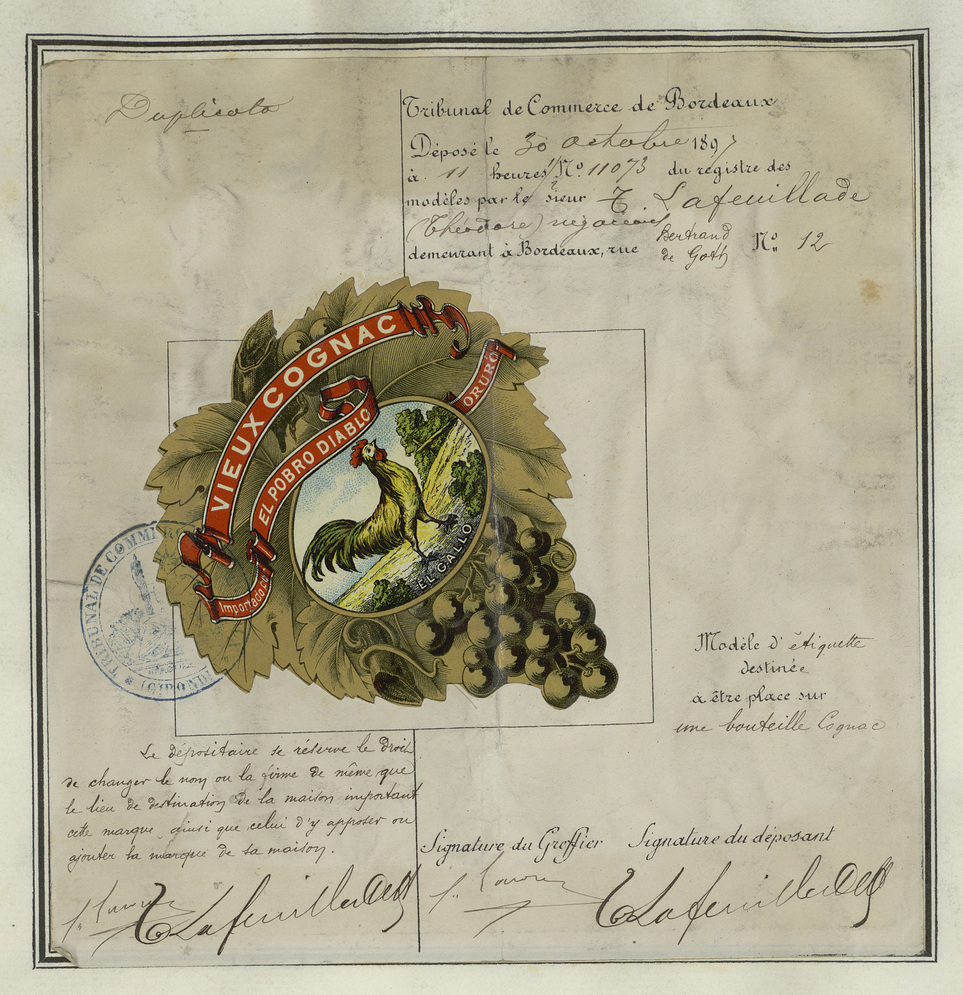 Duplicata
Tribunal de Commerce de Bordeaux
Déposé le 30 octobre 1897
à 11 heures N° 11073 du registre des
modèles par le sieur T. Lafeuillade
(Théodore) négociant
demeurant à Bordeaux, rue Bertrand de Goth N° 12
VIEUX COGNAC
EL POBRO DIABLO
ORURO
Importado por
EL GALLO
TRIBUNAL DE COMM
(GIRONDE)
Modèle d'étiquette
destinée
à être place sur
une bouteille Cognac
Le dépositaire se réserve le droit
de changer le nom ou la firme de même que
le lieu de destination de la maison important
cette marque, ainsi que celui d'y apposer ou
ajouter la marque de sa maison.
Signature du Greffier Signature du déposant
TLafeuillade
TLafeuillade